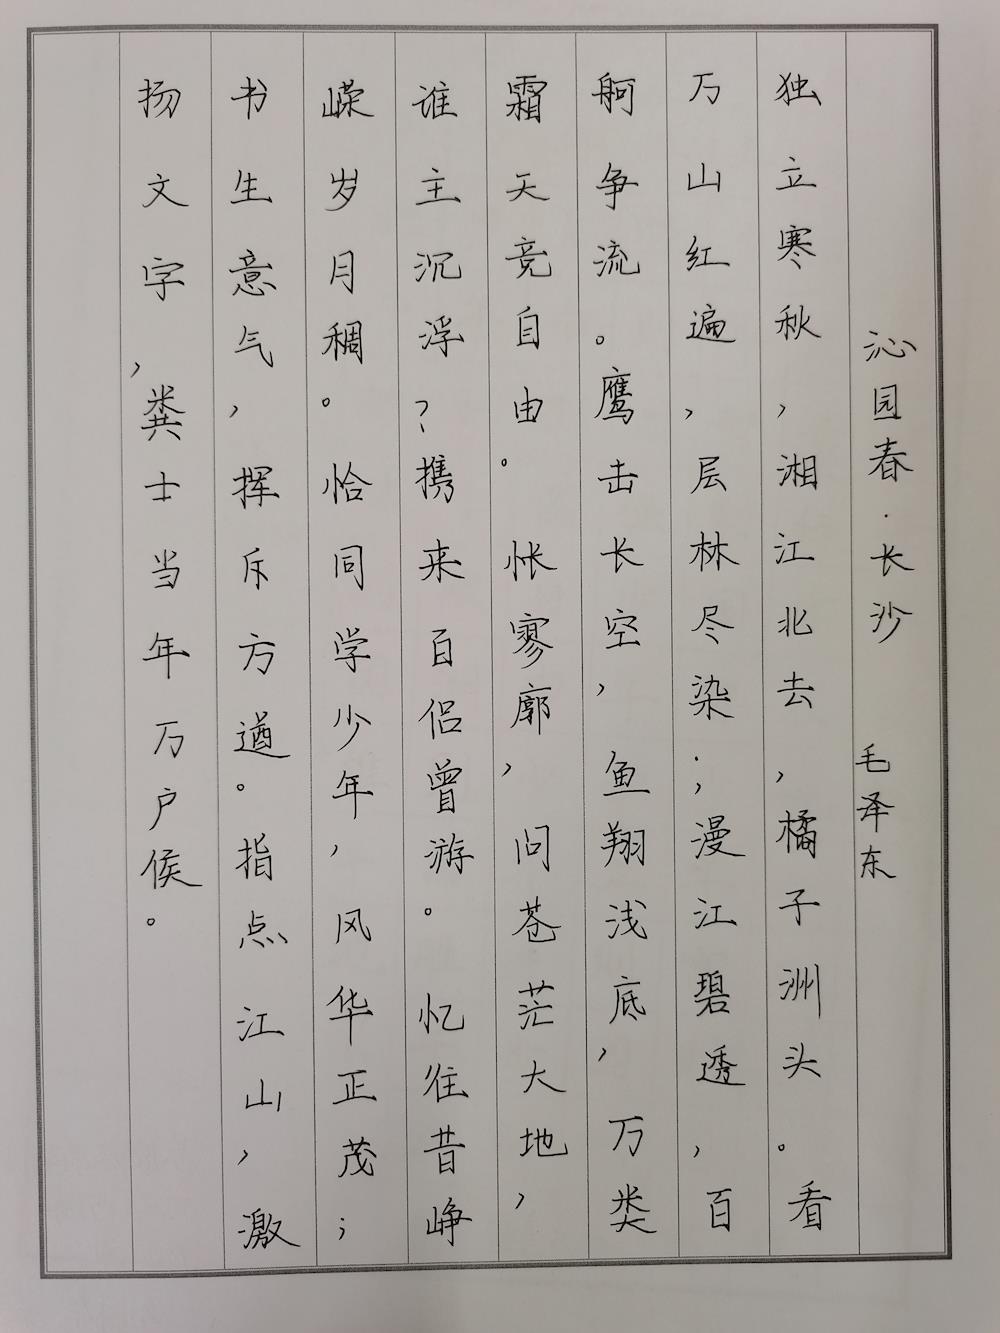 沁园春·长沙 毛泽东
独立寒秋，湘江北去，橘子洲头。看
万山红遍，层林尽染；漫江碧透，百
舸争流。鹰击长空，鱼翔浅底，万类
霜天竞自由。怅寥廓，问苍茫大地，
谁主沉浮？携来百侣曾游。忆往昔峥
嵘岁月稠。恰同学少年，风华正茂；
书生意气，挥斥方遒。指点江山，激
扬文字，粪士当年万户侯。